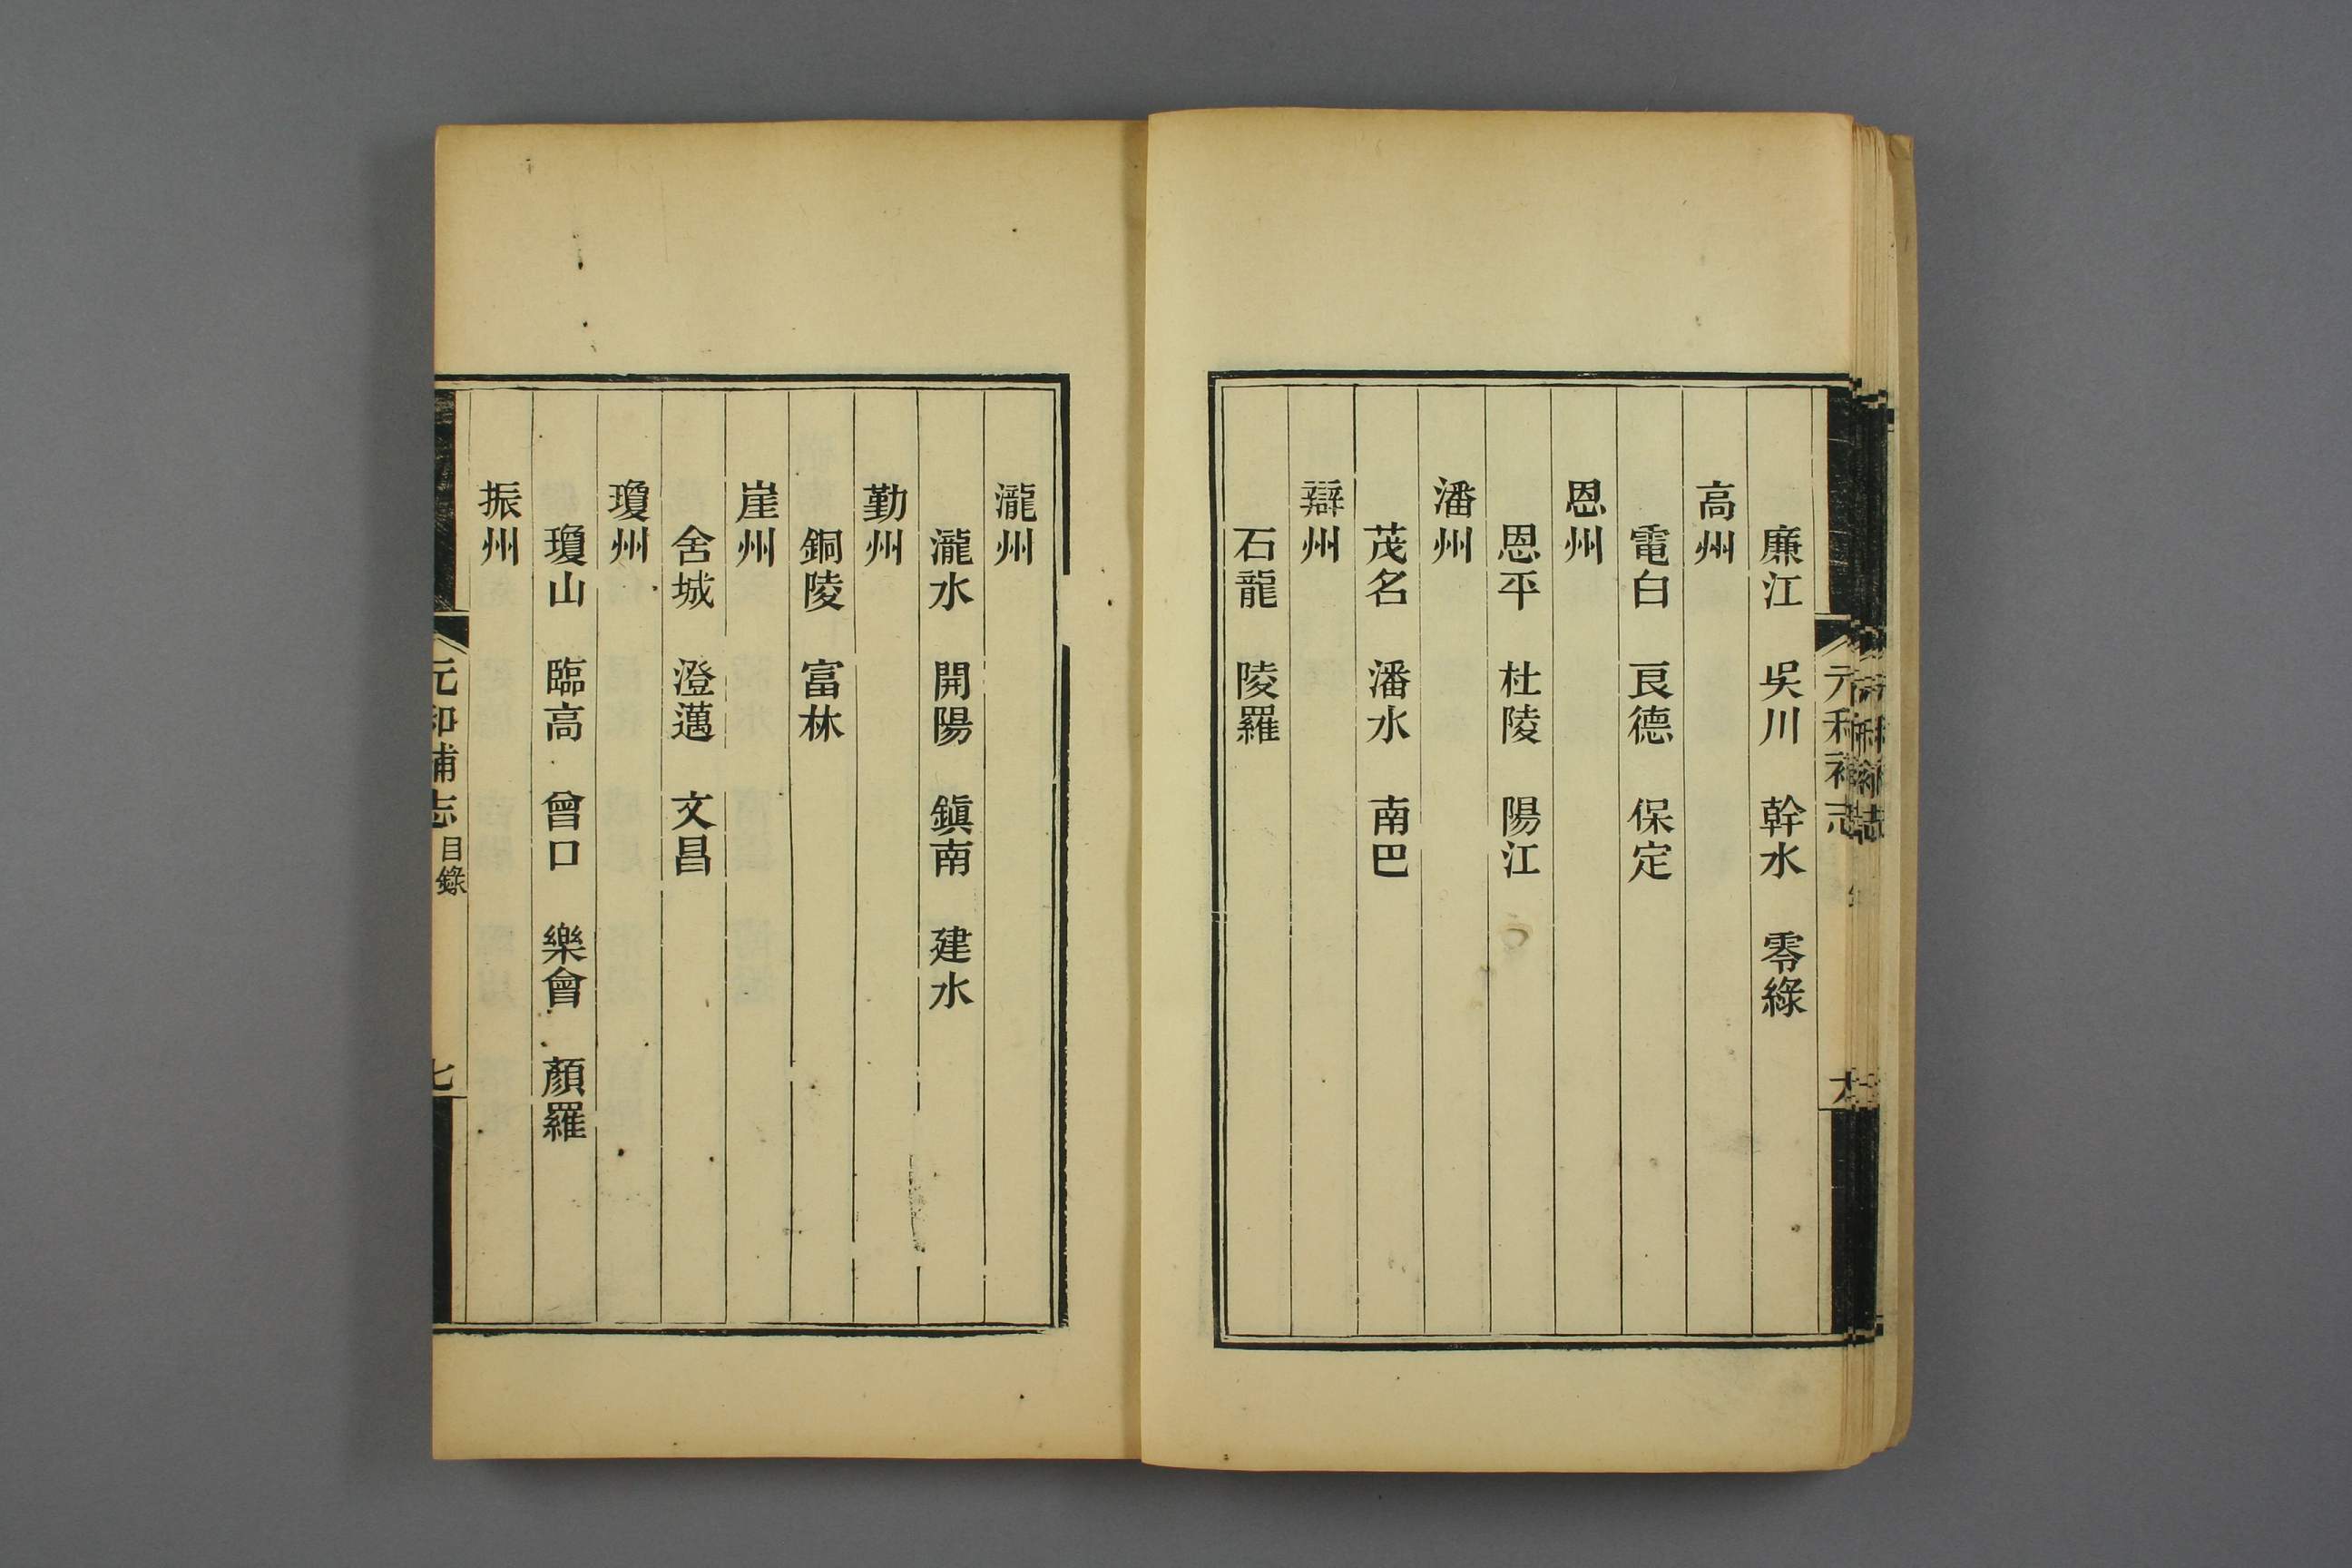 廉江　吳川　幹水　零綠
高州
電白　良德　保定
恩州
恩平　杜陵　陽江
潘州
茂名　潘水　南巴
辯州
石龍　陵羅
瀧州
瀧水　開陽　鎮南　建水
勤州
銅陵　富林
崖州
舍城　澄邁　文昌
瓊州
瓊山　臨高　曾口　樂會　顏羅
振州
元和補志　目錄　七